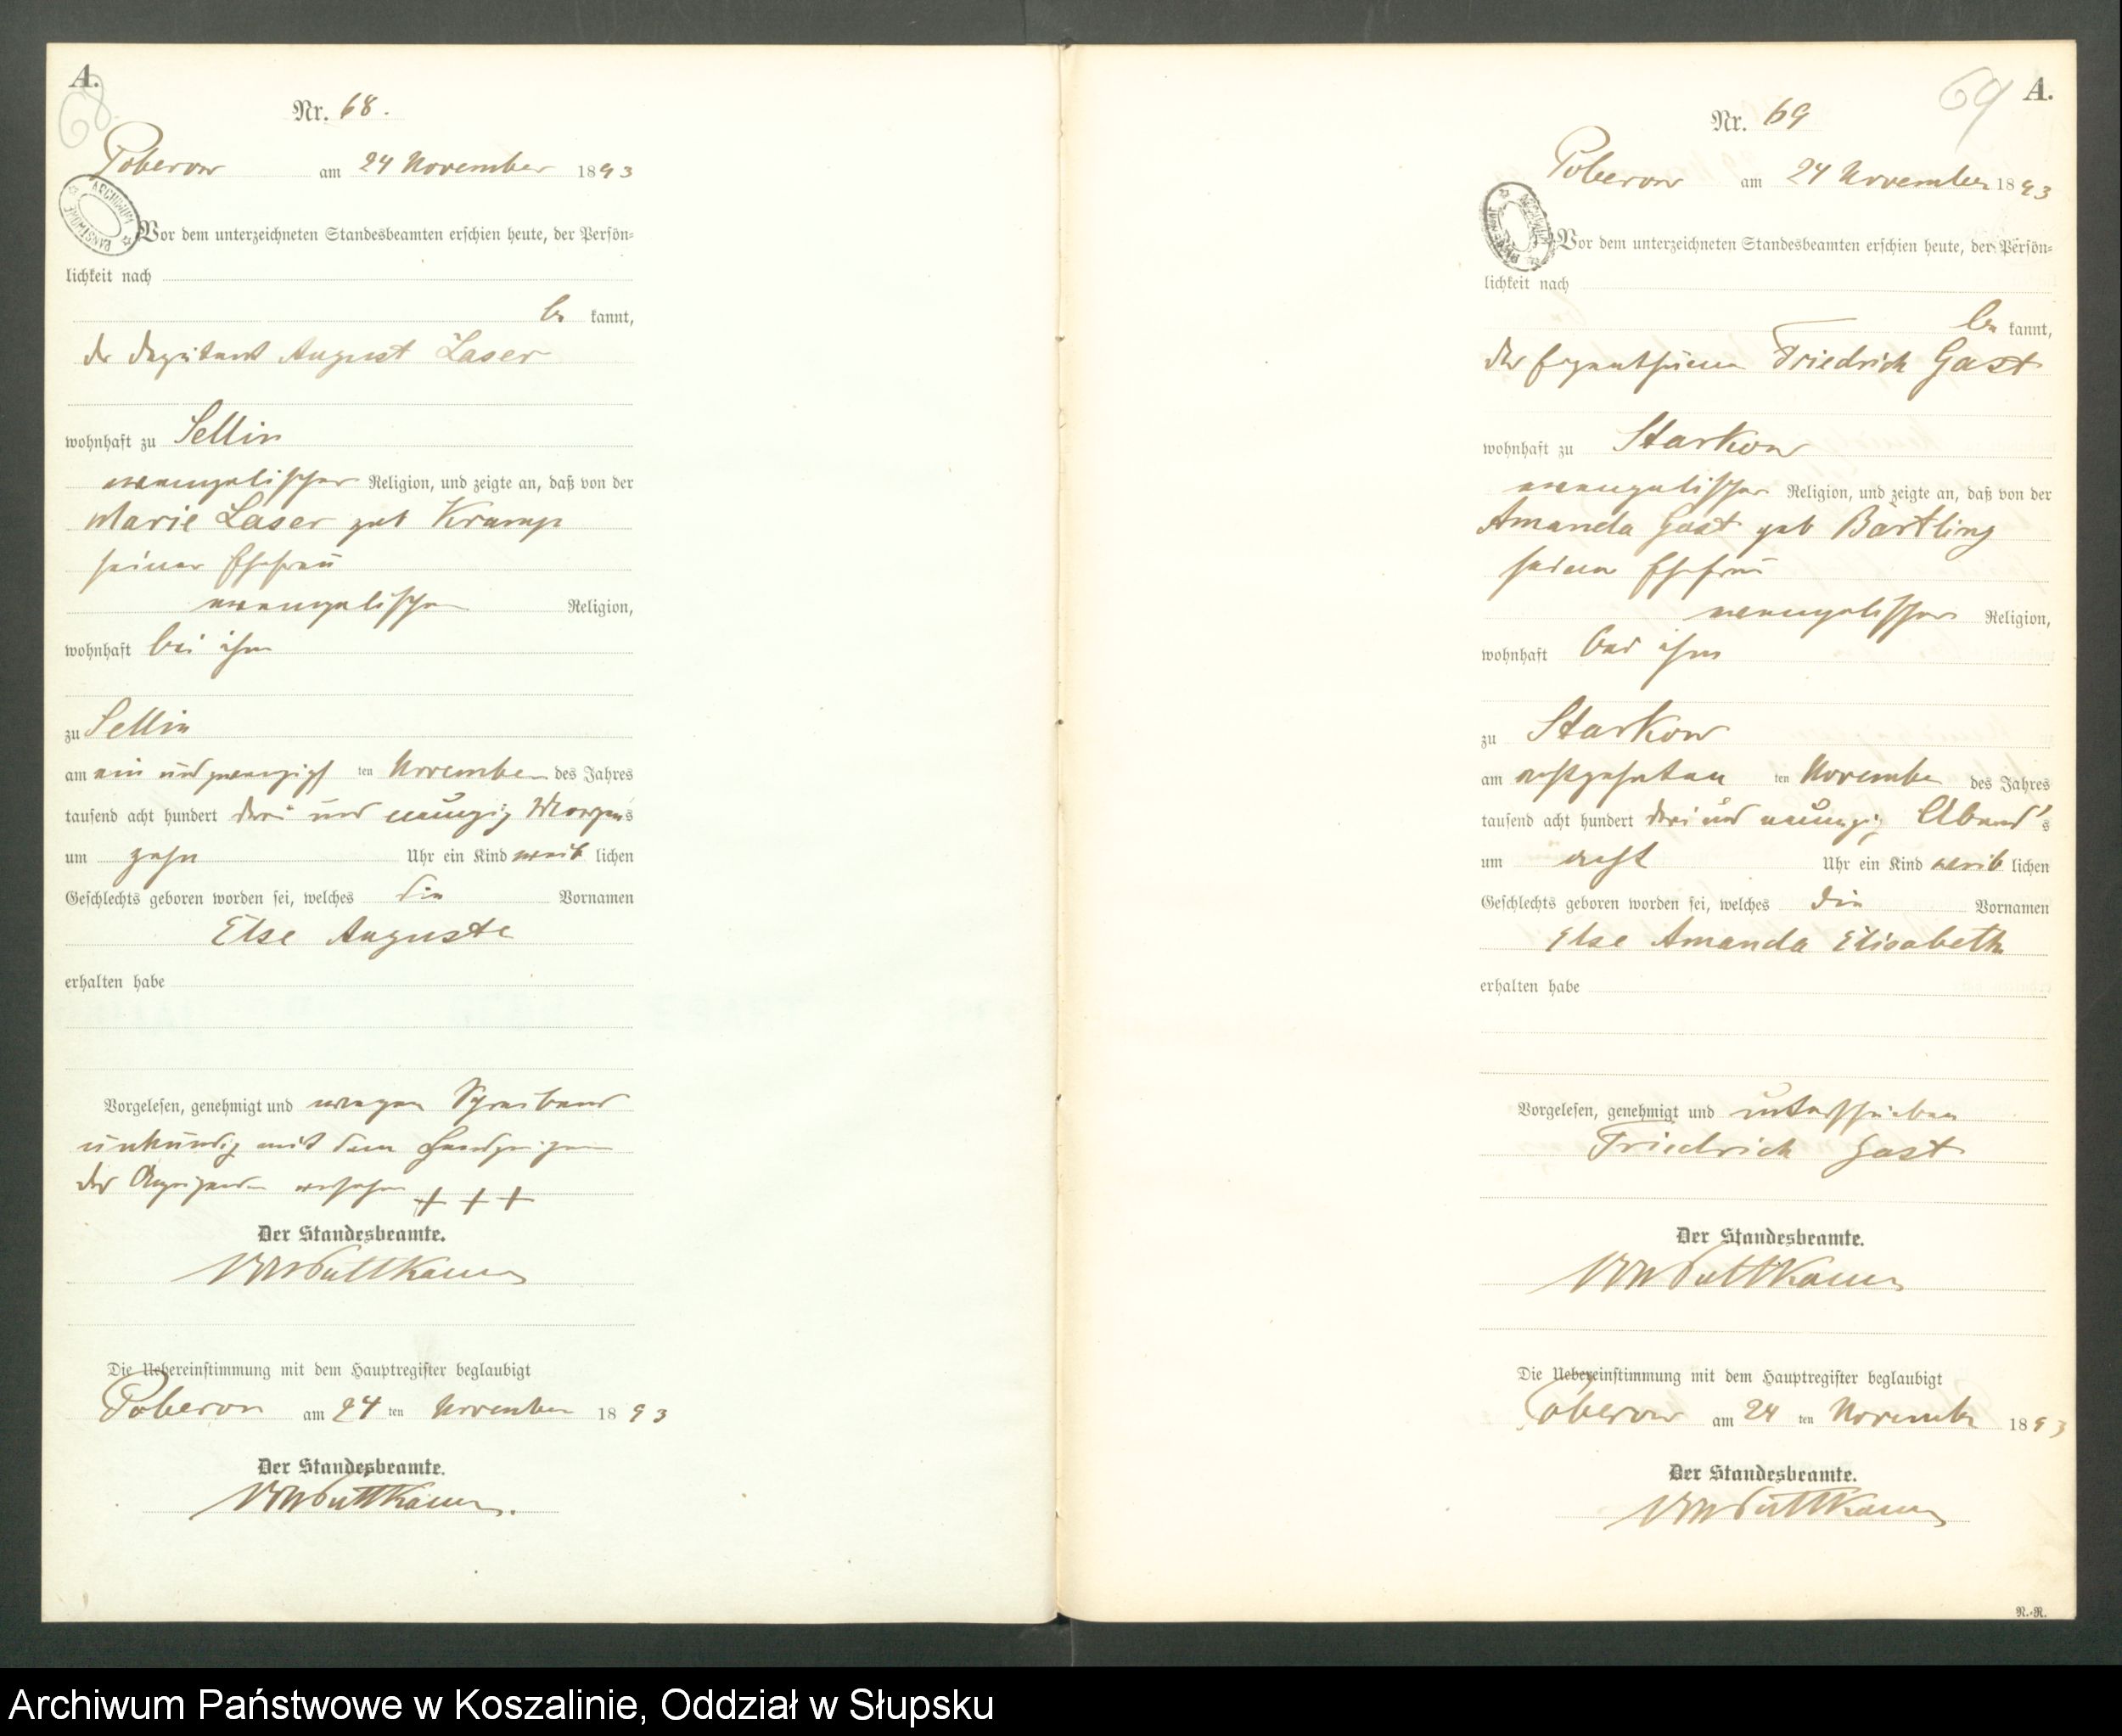 A.
68
Nr. 68.
Poberow am 24 November 1893
ARCHIWUM PAŃSTWOWE
Vor dem unterzeichneten Standesbeamten erschien heute, der Persön-
lichkeit nach
be kannt,
der Deputant August Laser
wohnhaft zu Sellin
evangelischer Religion, und zeigte an, daß von der
Marie Laser geb Kramp
seiner Ehefrau
evangelischer Religion,
wohnhaft bei ihm
zu Sellin
am ein und zwanzigst ten November des Jahres
tausend acht hundert drei und neunzig Morgens
um zehn Uhr ein Kind weib lichen
Geschlechts geboren worden sei, welches die Vornamen
Else Auguste
erhalten habe
Vorgelesen, genehmigt und wegen Schreibens
unkundig mit dem Handzeichen
des Anzeigenden versehen +++
Der Standesbeamte.
Puttkamer
Die Uebereinstimmung mit dem Hauptregister beglaubigt
Poberow am 24 ten November 1893
Der Standesbeamte.
Puttkamer.
69 A.
Nr. 69
Poberow am 24 November 1893
ARCHIWUM PAŃSTWOWE
Vor dem unterzeichneten Standesbeamten erschien heute, der Persön-
lichkeit nach
be kannt,
der Eigenthümer Friedrich Gast
wohnhaft zu Starkow
evangelischer Religion, und zeigte an, daß von der
Amanda Gast geb Bartling
seiner Ehefrau
evangelischer Religion,
wohnhaft bei ihm
zu Starkow
am achtzehnten ten November des Jahres
tausend acht hundert drei und neunzig Abend's
um acht Uhr ein Kind weib lichen
Geschlechts geboren worden sei, welches die Vornamen
Else Amanda Elisabeth
erhalten habe
Vorgelesen, genehmigt und unterschrieben
Friedrich Gast
Der Standesbeamte.
Puttkamer
Die Uebereinstimmung mit dem Hauptregister beglaubigt
Poberow am 24 ten November 1893
Der Standesbeamte.
Puttkamer
N.-R.
Archiwum Państwowe w Koszalinie, Oddział w Słupsku